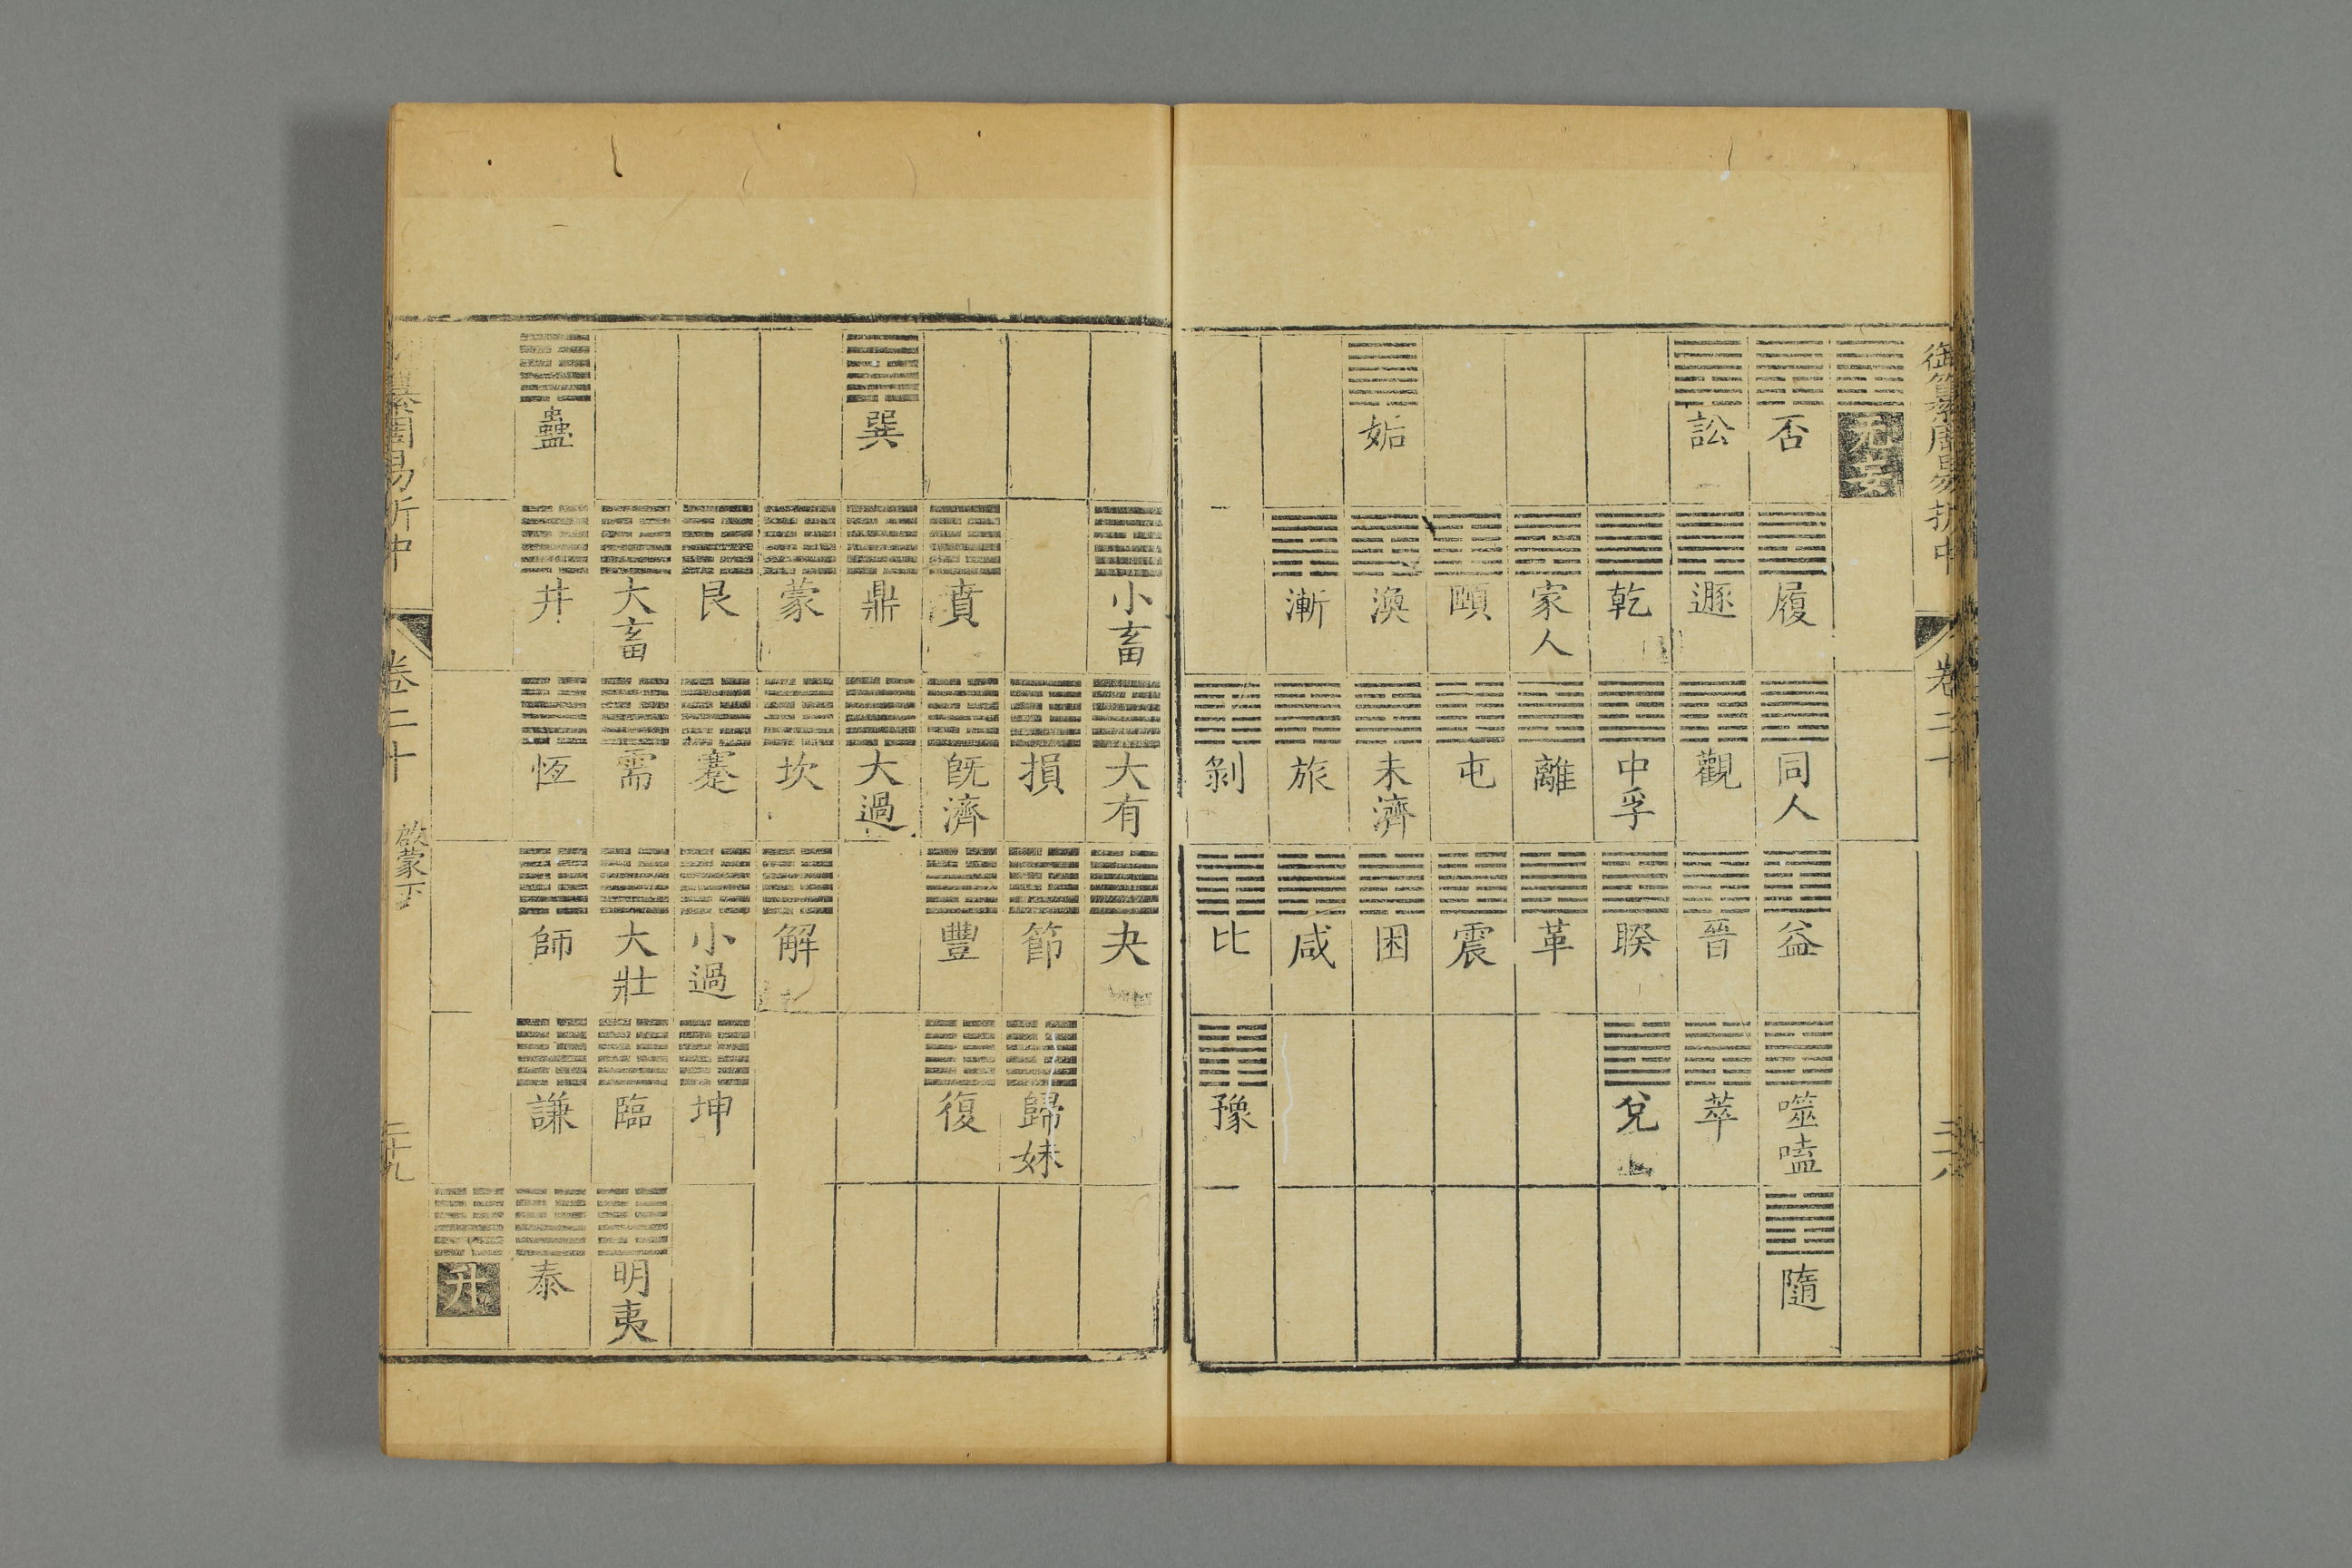 御纂周易折中 卷二十
无妄
否 履 同人 益 噬嗑 隨
訟 遯 觀 晉 萃
乾 中孚 睽 兌
家人 離 革
頤 屯 震
姤 渙 未濟 困
漸 旅 咸
剝 比 豫
小畜 大有 夬
損 節 歸妹
賁 既濟 豐 復
巽 鼎 大過
蒙 坎 解
艮 蹇 小過 坤
大畜 需 大壯 臨 明夷
蠱 井 恆 師 謙 泰
升
周易折中 卷二十 啟蒙下